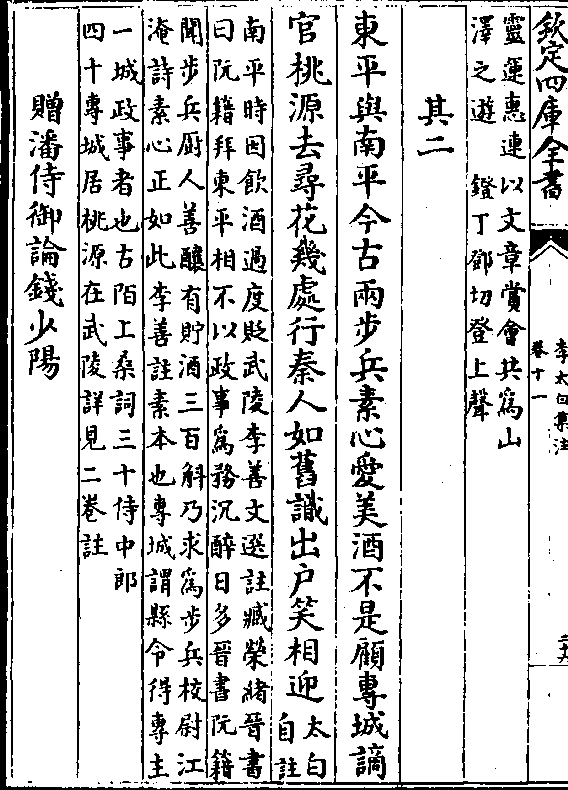 欽定四庫全書
李太白集注
卷十一
二十六
靈運惠連以文章賞會共為山
澤之遊　鐙丁鄧切登上聲
其二
東平與南平今古兩步兵素心愛美酒不是顧專城謫
官桃源去尋花幾處行秦人如舊識出戸笑相迎太白
自註
南平時因飲酒過度貶武陵李善文選註臧榮緒晉書
曰阮籍拜東平相不以政事為務沉醉日多晉書阮籍
聞步兵厨人善釀有貯酒三百斛乃求為步兵校尉江
淹詩素心正如此李善註素本也專城謂縣令得專主
一城政事者也古陌上桑詞三十侍中郎
四十專城居桃源在武陵詳見二卷註
贈潘侍御論錢少陽